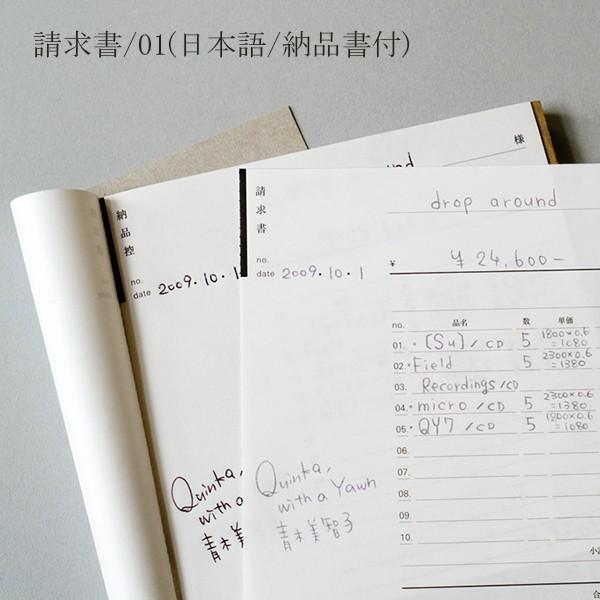 請求書/01(日本語/納品書付)
様
納品控
no.
date 2009.10.1
Quinka,
with a
青木美智子
請求書
no.
date 2009.10.1
drop around
¥ ¥24,600-
no. 品名 数 単価
01. ・[Su]/CD 5 1800×0.6
=1080
02. ・Field 5 2300×0.6
=1380
03. Recordings/CD
04. ・micro/CD 5 2300×0.6
=1380
05. ・QY7/CD 5 1800×0.6
=1080
06.
07.
08.
09.
10.
小
合
Quinka,
with a Yawn
青木美智子